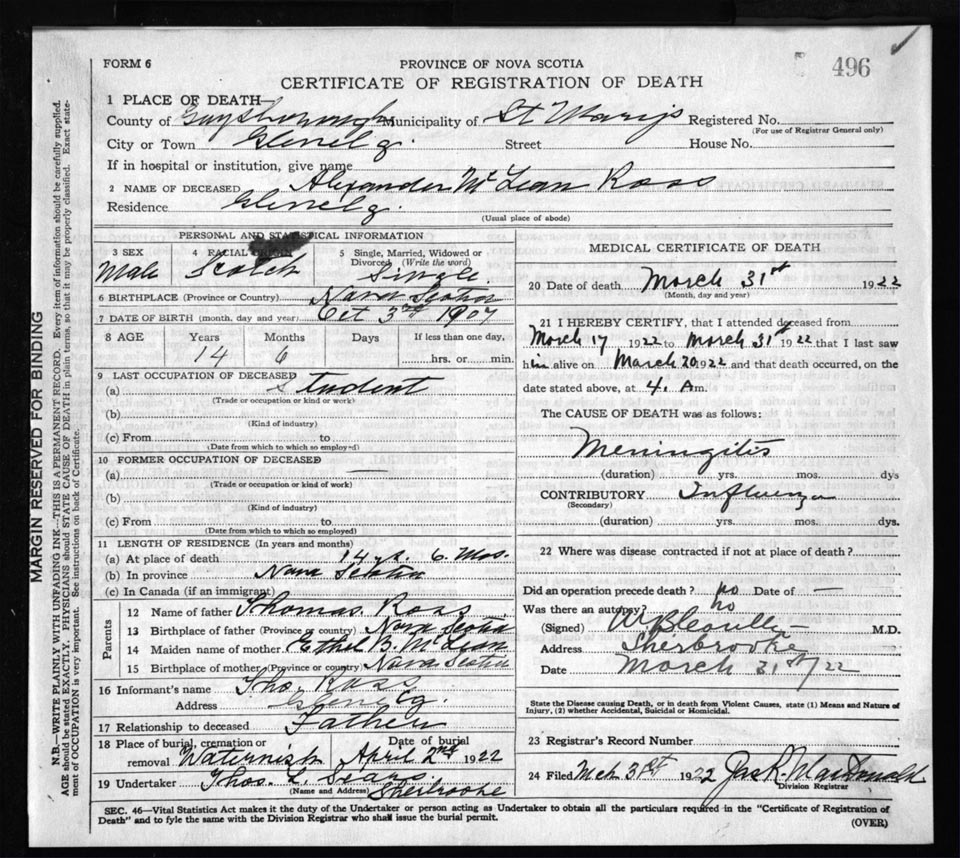 FORM 6
PROVINCE OF NOVA SCOTIA
496
CERTIFICATE OF REGISTRATION OF DEATH
1 PLACE OF DEATH—
County of Guysborough Municipality of St Marys Registered No.
(For use of Registrar General only)
City or Town Glenelg. Street House No.
If in hospital or institution, give name
2 NAME OF DECEASED Alexander McLean Ross
Residence Glenelg.
(Usual place of abode)
PERSONAL AND STATISTICAL INFORMATION
3 SEX Male
4 RACIAL ORIGIN Scotch
5 Single, Married, Widowed or Divorced (Write the word) Single
6 BIRTHPLACE (Province or Country) Nova Scotia
7 DATE OF BIRTH (month, day and year) Oct 3rd 1907
8 AGE Years Months Days If less than one day,
14 6 hrs. or min.
9 LAST OCCUPATION OF DECEASED
(a) Student
(Trade or occupation or kind or work)
(b)
(Kind of industry)
(c) From to
(Date from which to which so employed)
10 FORMER OCCUPATION OF DECEASED
(a) —
(Trade or occupation or kind of work)
(b)
(Kind of industry)
(c) From to
(Date from which to which so employed)
11 LENGTH OF RESIDENCE (In years and months)
(a) At place of death 14 yr. 6 Mos.
(b) In province Nova Scotia
(c) In Canada (if an immigrant)
Parents
12 Name of father Thomas Ross
13 Birthplace of father (Province or country) Nova Scotia
14 Maiden name of mother Ethel B. McLean
15 Birthplace of mother (Province or country) Nova Scotia
16 Informant's name Tho, Ross
Address Glenelg
17 Relationship to deceased Father
18 Place of burial, cremation or removal Waternish Date of burial April 2nd 1922
19 Undertaker Thos. L. Sears.
(Name and Address) Sherbrooke
MEDICAL CERTIFICATE OF DEATH
20 Date of death March 31st 1922
(Month, day and year)
21 I HEREBY CERTIFY, that I attended deceased from
March 17 1922 to March 31st 1922 that I last saw
him alive on March 30 1922 and that death occurred, on the
date stated above, at 4. A m.
The CAUSE OF DEATH was as follows:
Meningitis
(duration) yrs. mos. dys
CONTRIBUTORY Influenza
(Secondary)
(duration) yrs. mos. dys.
22 Where was disease contracted if not at place of death?
Did an operation precede death? no Date of —
Was there an autopsy? no
(Signed) M.D.
Address Sherbrooke
Date March 31st/22
State the Disease causing Death, or in death from Violent Causes, state (1) Means and Nature of
Injury, (2) whether Accidental, Suicidal or Homicidal.
23 Registrar's Record Number
24 Filed Mch 31st 1922 Jas R. MacDonald
Division Registrar
SEC. 46—Vital Statistics Act makes it the duty of the Undertaker or person acting as Undertaker to obtain all the particulars required in the "Certificate of Registration of
Death" and to fyle the same with the Division Registrar who shall issue the burial permit.
(OVER)
MARGIN RESERVED FOR BINDING
N.B.—WRITE PLAINLY WITH UNFADING INK—THIS IS A PERMANENT RECORD. Every item of information should be carefully supplied.
AGE should be stated EXACTLY. PHYSICIANS should STATE CAUSE OF DEATH in plain terms, so that it may be properly classified. Exact state-
ment of OCCUPATION is very important. See instructions on back of Certificate.